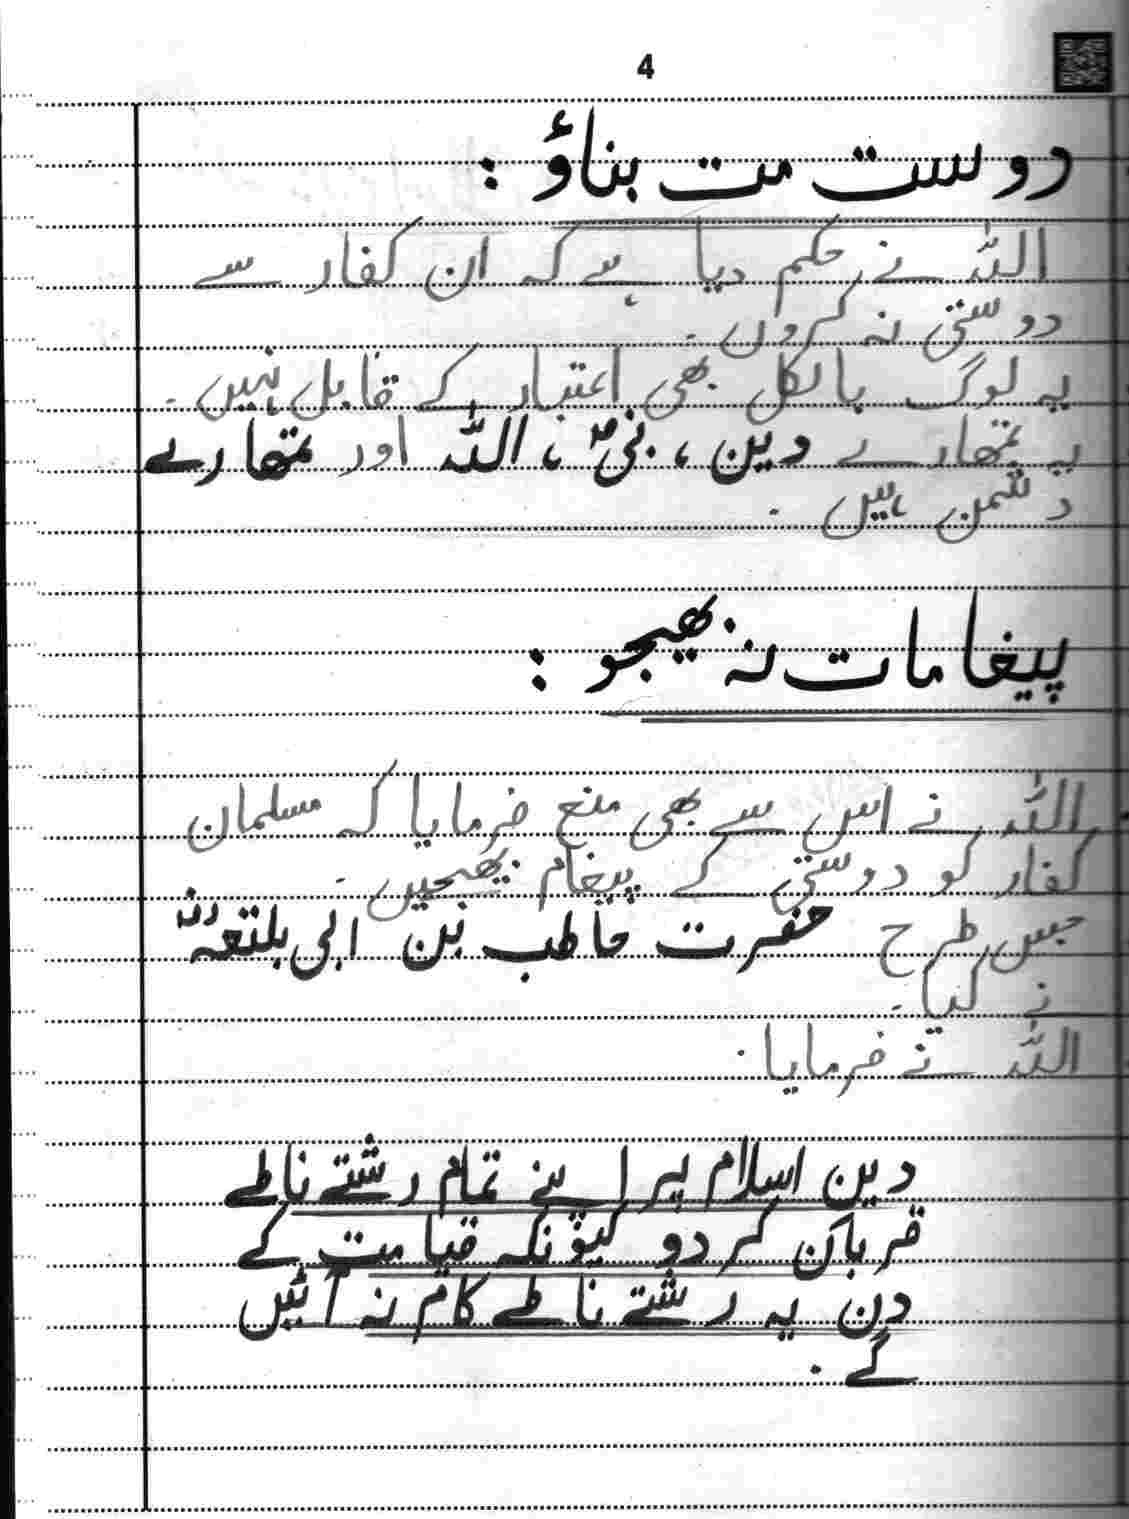 4
دوست مت بناؤ :
اللہ نے حکم دیا ہے کہ ان کفار سے
دوستی نہ کروں۔
یہ لوگ بالکل بھی اعتبار کے قابل نہیں۔
یہ تمھارے دین ، نبیؐ ، اللہ اور تمھارے
دشمن ہیں ۔
پیغامات نہ بھیجو :
اللہ نے اس سے بھی منع فرمایا کہ مسلمان
کفار کو دوستی کے پیغام بھیجیں ۔
جس طرح حضرت حاطب بن ابی بلتعہؓ
نے کیا ۔
اللہ نے فرمایا :
دین اسلام پر اپنے تمام رشتے ناطے
قربان کر دو کیونکہ قیامت کے
دن یہ رشتے ناطے کام نہ آئیں
گے ۔